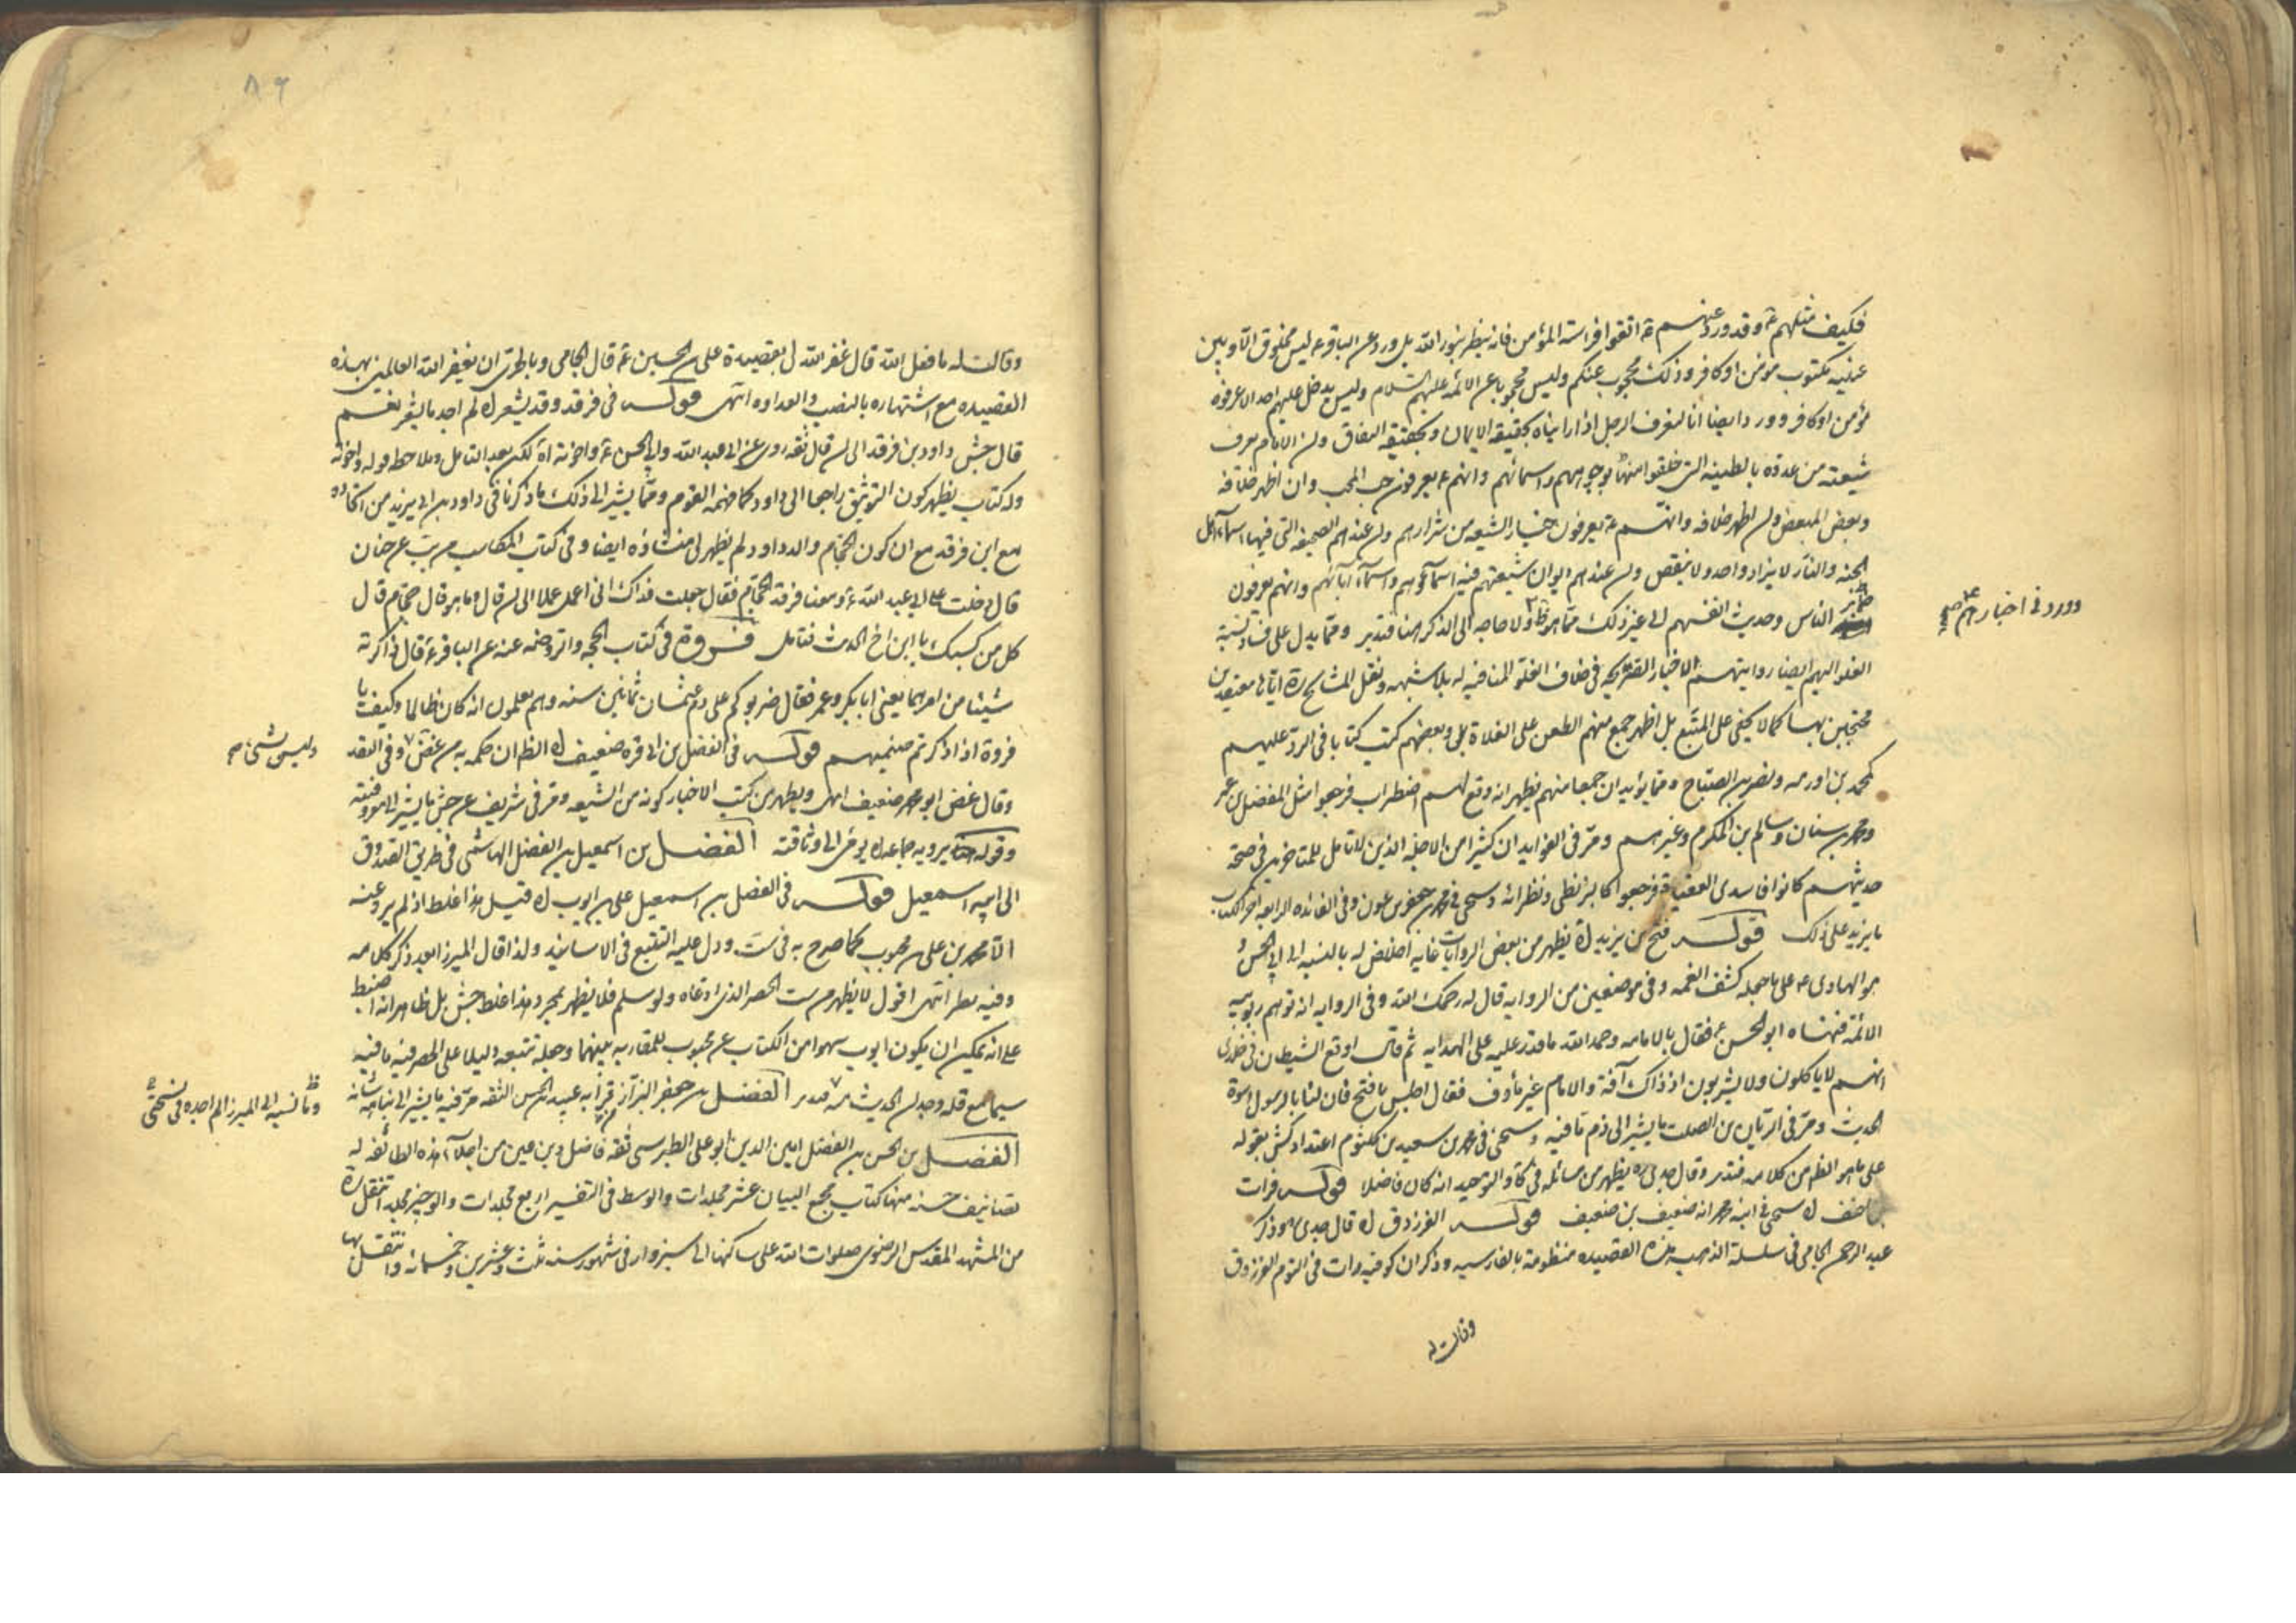 فكيف مثلهم ع وقد ورد عنهم ع اتقوا فراسة المؤمن فانه ينظر بنور الله بل ورد عن الباقر ع ليس مخلوق الا وبين
عينيه مكتوب مؤمن او كافر وذلك محجوب عنكم وليس محجوبا عن الائمة عليهم السلام وليس يدخل عليهم احد الا عرفوه
مؤمن او كافر وورد ايضا انا لنعرف الرجل اذا رايناه بحقيقة الايمان وبحقيقة النفاق وان الامام يعرف
شيعته من عدوه بالطينة التي خلقوا منها بوجوههم واسمائهم وانهم ع يعرفون حب المحب وان اظهر خلافه
وبغض المبغض وان اظهر خلافه وانهم ع يعرفون خيار الشيعه من شرارهم وان عندهم الصحيفة التي فيها اسماء اهل
الجنه والنار لا يزاد واحد ولا ينقص وان عندهم ديوان شيعتهم فيه اسماؤهم واسماء ابائهم وانهم يعرفون
ضمائر الناس وحديث انفسهم الى غير ذلك مما هو ولا حاجه الى الذكر هنا فتدبر ومما يدل على فساد نسبة
وورد في اخبارهم
الغلو اليهم ايضا روايتهم الاخبار الصريحه في خلاف الغلو المنافيه له بلا شبهه ونقل المشايخ ره اياها معتقدين
محتجين بها كما لا يخفى على المتتبع بل اظهر جمع منهم الطعن على الغلاة بل وبعضهم كتب كتابا في الرد عليهم
كمحمد بن اورمه ونصر بن الصباح ومما يؤيد ان جمعا منهم يظهر انه وقع لهم اضطراب فرجعوا مثل المفضل بن عمر
ومحمد بن سنان وسالم بن المكرم وغيرهم ومر في الفوايد ان كثيرا من الاجله الذين لا تامل للمتاخرين في صحة
حديثهم كانوا فاسدى العقيدة فرجعوا كالبزنطى ونظرائه وسيجى في محمد بن جعفر بن عون وفي الفائده الرابعه اخر الكتاب
ما يزيد على ذلك قوله فتح بن يزيد اه يظهر من بعض الروايات غاية اخلاص له بالنسبه الى ابي الحسن
هو الهادى ع على ما حمله كشف الغمه وفى موضعين من الروايه قال له رحمك الله وفى الروايه انه توهم ربوبيه
الائمة فنهاه ابو الحسن ع فقال بالامامه وحمد الله ما قدر عليه على الهدايه ثم قال اوقع الشيطان في خلدى
انهم لا ياكلون ولا يشربون اذ ذاك آفة والامام غير مأوف فقال اجلس يا فتح فان لنا بالرسول اسوة
الحديث ومر فى الريان بن الصلت ما يشير الى ذم ما فيه وسيجئ فى محمد بن سعيد بن كلثوم اعتداد كش بقوله
على ما هو الظ من كلامه فتدبر وقال جدى ره يظهر من مسائله في كا والتوحيد انه كان فاضلا قوله فرات
بن احنف اه سيجئ في ابنه محمد انه ضعيف بن ضعيف قوله الفرزدق اه قال جدى ره ذكر
عبد الرحمن الجامى فى سلسلة الذهب هذه القصيده منظومة بالفارسيه وذكر ان كوفيه رات فى النوم الفرزدق
وقالت له
٨٦
وقالت له ما فعل الله قال غفر الله لى بقصيدة على بن الحسين ع قال الجامى وبالحرى ان يغفر الله العالمين بهذه
القصيده مع اشتهاره بالنصب والعداوه انتهى قوله فى فرقد وقد يشعر اه لم اجد ما يشعر نعم
قال جش داود بن فرقد الى ان قال ثقه روى عن ابى عبد الله وابى الحسن ع واخوته اه لكن بعد التامل وملاحظه قوله واخوته
وله كتاب يظهر كون التوثيق راجعا الى داود كما فهمه القوم ومما يشير الى ذلك ما ذكرنا في داود بن ابى يزيد من اتحاده
مع ابن فرقد مع ان كون الحجام والد داود لم يظهر لى منشاؤه ايضا وفى كتاب المكاسب من يب عن حنان
قال دخلت على ابي عبد الله ع ومعنا فرقد الحجام فقال جعلت فداك انى اعمل عملا الى ان قال وما هو قال حجام قال
كل من كسبك يا ابن اخ الحديث فتامل فروة فى كتاب الحجه والروضه عنه عن الباقر ع قال ذاكرته
شيئا من امرهما يعنى ابا بكر وعمر فقال ضربوكم على دم عثمان ثمانين سنه وهم يعلمون انه كان ظالما وكيف يا
فروة اذا ذكرتم صنميهم قوله فى الفضل بن ابى قره ضعيف اه الظ ان حكمه به من غض وفى النقد
وليس بشئ
وقال غض ابو محمد ضعيف انتهى ويظهر من كتب الاخبار كونه من الشيعه ومر فى شريف عن جش ما يشير الى معروفيته
وقوله يرويه جماعه اه يومى الى وثاقته الفضل بن اسمعيل بن الفضل الهاشمى فى طريق الصدوق
الى ابيه اسمعيل قوله فى الفضل بن اسمعيل على بن ايوب اه قيل هذا غلط اذ لم يرو عنه
الا محمد بن على بن محبوب كما صرح به فى ست ودل عليه التتبع فى الاسانيد ولذا قال الميرزا بعد ذكر كلامه
وفيه نظر انتهى اقول لا يظهر من ست الحصر الذى ادعاه ولو سلم فلا يظهر بمجرد هذا غلط جش بل ظاهرا انه اضبط
على انه يمكن ان يكون ايوب سهوا من الكتاب عن محبوب للمقاربه بينهما وجعله تتبعه دليلا على الحصر فيه ما فيه
سيما مع قله وجدان الحديث منه فتدبر الفضل بن جعفر البزاز قرابه عبيد بن الحسن الثقه مر فيه ما يشير الى نباهة شانه
وما نسبه الى الميرزا لم اجده في نسختى
الفضل بن الحسن بن الفضل امين الدين ابو على الطبرسى ثقه فاضل دين عين من اجلاء هذه الطائفه له
تصانيف حسنه منها كتاب مجمع البيان عشر مجلدات والوسط فى التفسير اربع مجلدات والوجيز مجلد انتقل ره
من المشهد المقدس الرضوى صلوات الله على ساكنها الى سبزوار فى شهور سنه ثلث وعشرين وخمسمائه وانتقل بها